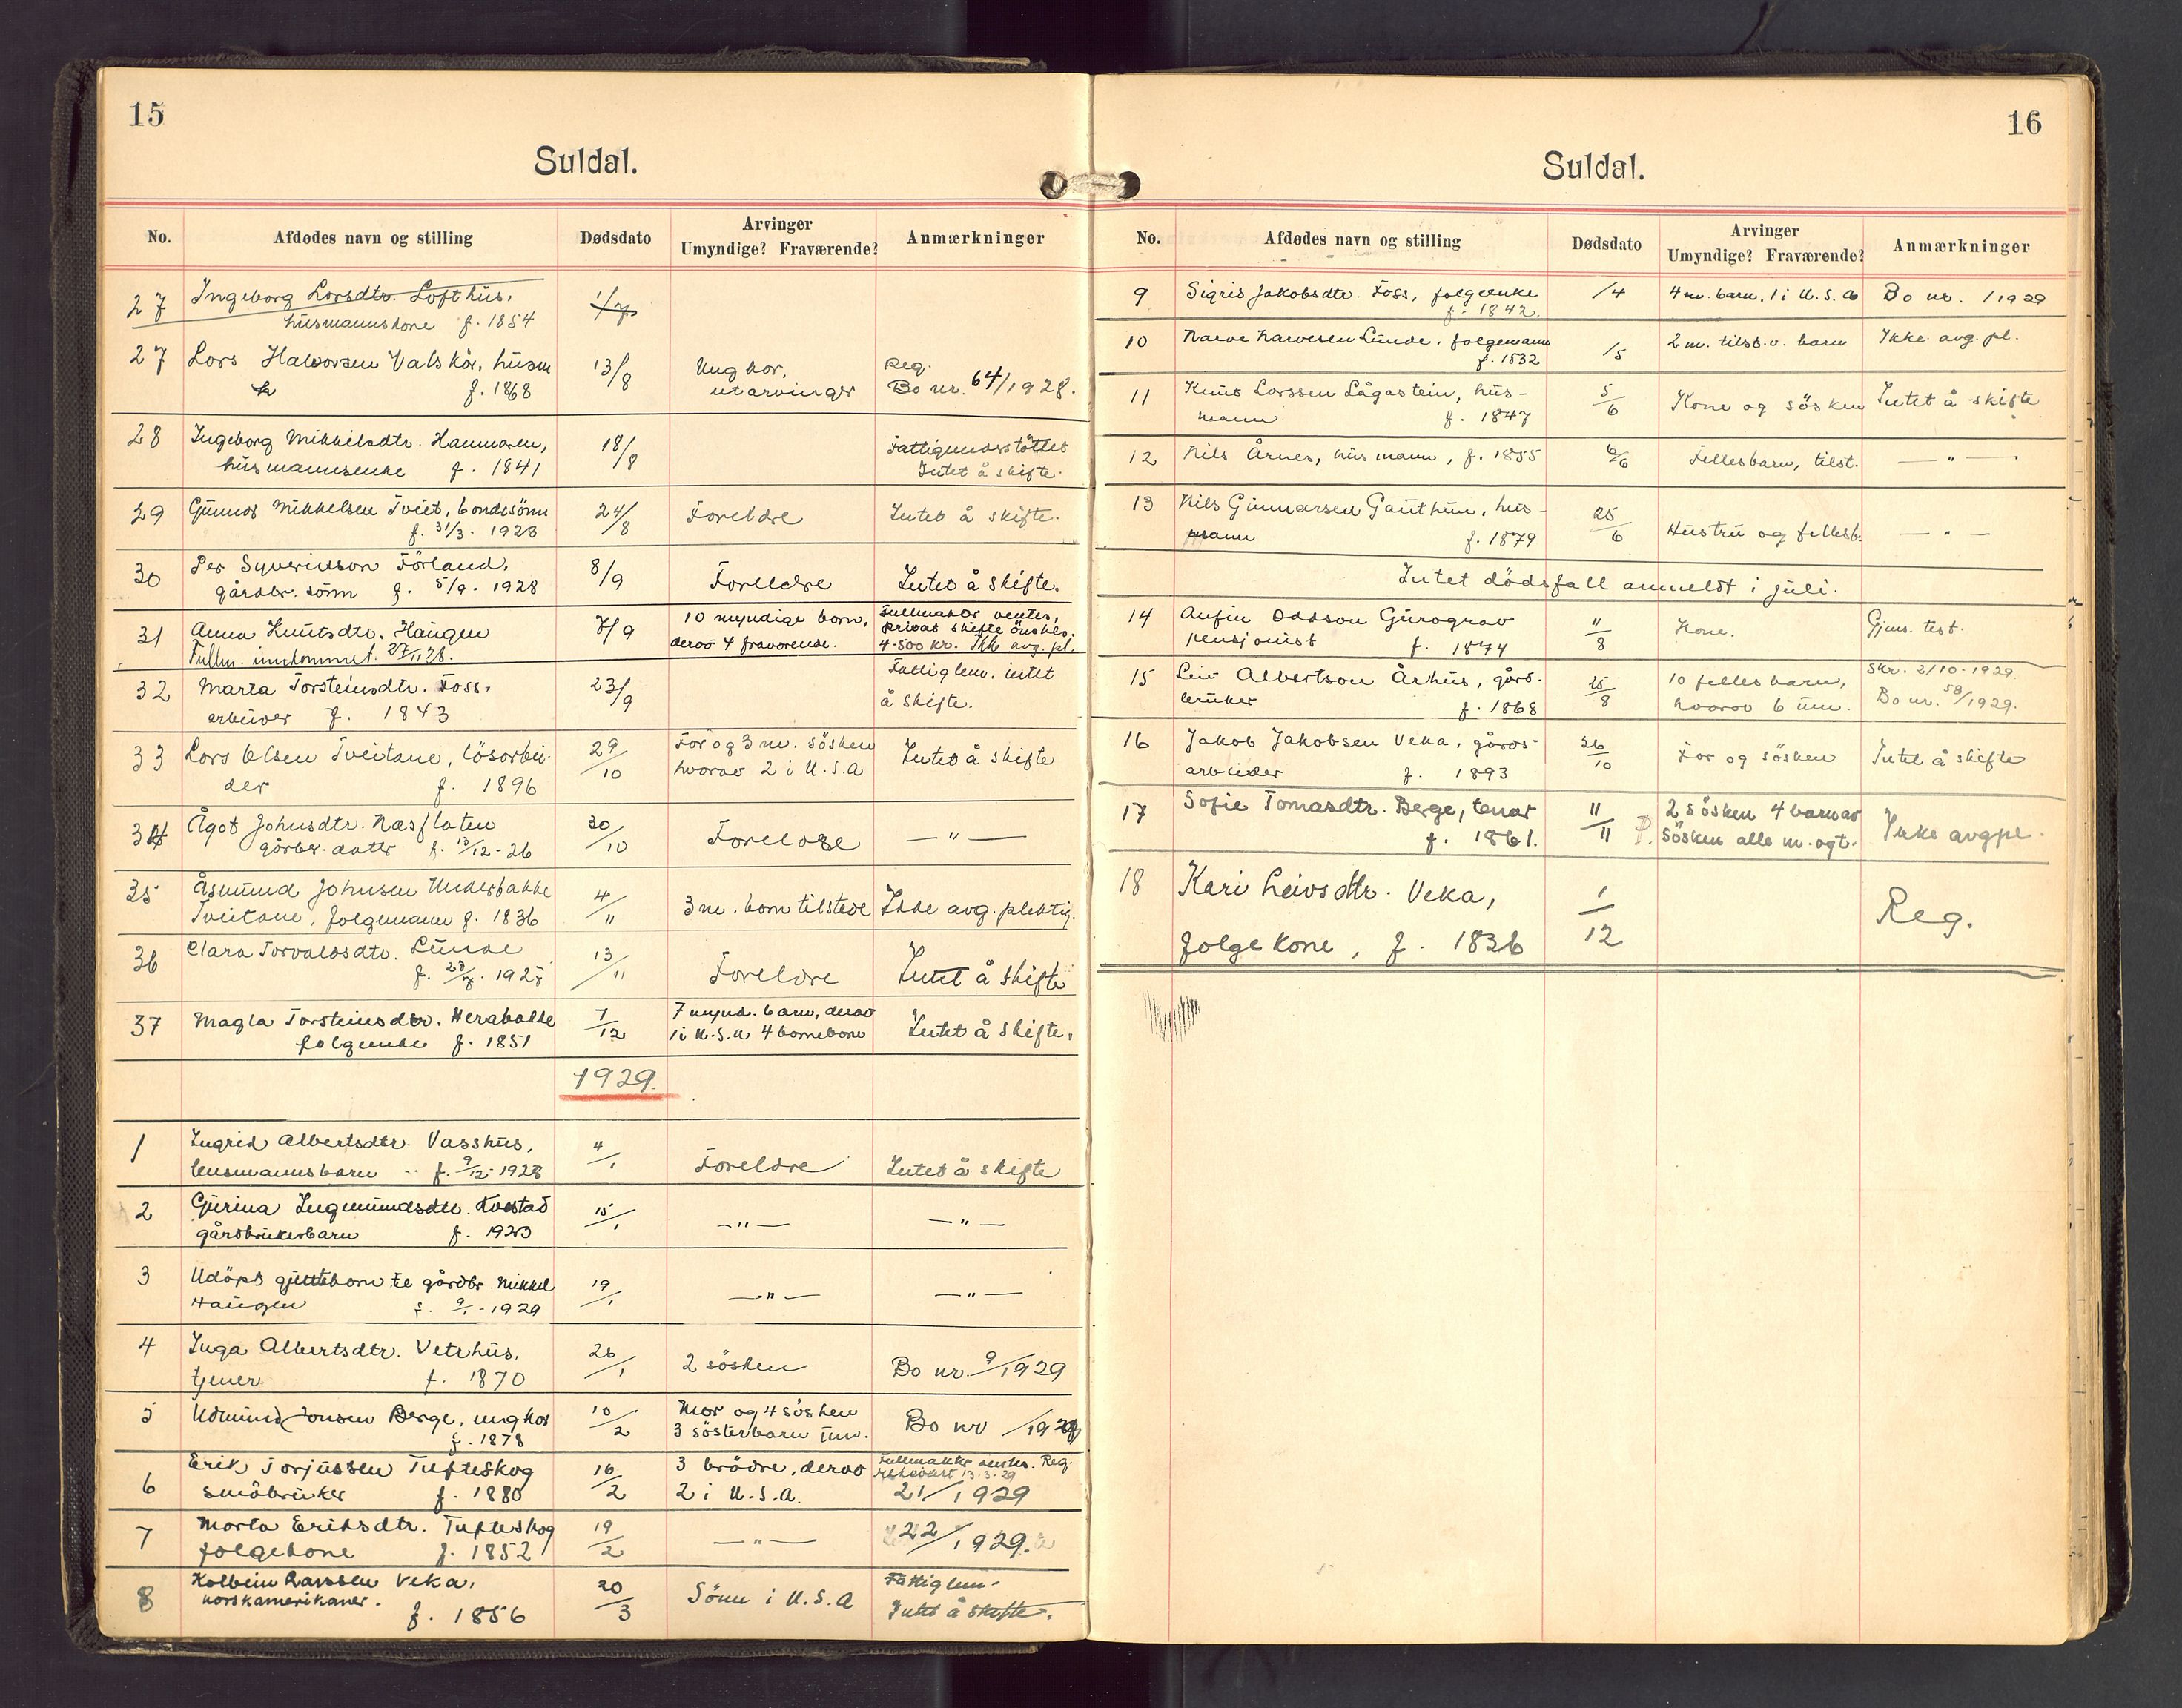 15
Suldal.
No. Afdødes navn og stilling Dødsdato Arvinger Umyndige? Fraværende? Anmærkninger
27 Ingeborg Larsdtr. Lofthus, 1/7
husmannskone f. 1854
27 Lars Halvorsen Valskår, husm 13/8 Ungkar, Reg.
f. 1868 utarvinger Bo nr. 64/1928.
28 Ingeborg Mikkelsdtr. Hammaren, 18/8 Fattigunderstöttet
husmannsenke f. 1841 Intet å skifte.
29 Gunnar Mikkelsen Tveit, bondesönn 24/8 Foreldre Intet å skifte.
f. 31/3. 1928
30 Per Syverinson Förland, 8/9 Foreldre Intet å skifte.
gårdbr. sönn f. 5/9. 1928
31 Anna Knutsdtr. Haugen 7/9 10 myndige barn, Fullmakt ventes,
derav 4 fraværende. privat skifte önskes.
Fullm. innkommet 27/11 28. 4-500 kr. Ikke avg. pl.
32 Marta Torsteinsdtr. Foss. 23/9 Fattiglem. intet
arbeider f. 1843 å skifte.
33 Lars Olsen Tveitane, lösarbei- 29/10 Far og 3 m. sösken Intet å skifte
der f. 1896 hvorav 2 i U.S.A
34 Ågot Johnsdtr. Næsflaten 30/10 Foreldre — " —
gårbr. datter f. 13/12-26
35 Åsmund Johnsen Underbakke 4/11 3 m. barn tilstede Ikke avg. pliktig.
Tveitane, folgemann f. 1836
36 Clara Torvaldsdtr. Lunde 13/11 Foreldre Intet å skifte
37 Magla Torsteinsdtr. Herabakke 7/12 7 mynd. barn, derav Intet å skifte.
folgeenke f. 1851 1 i U.S.A 4 barnebarn
1929.
1 Ingrid Albertsdtr. Vasshus, 4/1 Foreldre Intet å skifte
husmannsbarn f. 9/12-1928
2 Gurina Ingemundsdtr. 15/1 — " — — " —
gårdbrukerbarn
3 Udöpt guttebarn til gårdbr. Mikkel 19/1 — " — — " —
Haugen f. 9/1-1929
4 Inga Albertsdtr. Vetrhus, 26/1 2 sösken Bo nr. 9/1929
tjener f. 1870
5 Udmund Jonsen Berge, ungkar 10/2 Mor og 4 sösken Bo nr /1929
f. 1878 3 sösterbarn um.
6 Erik Torjussen Tufteskog 16/2 3 brödre, derav Fullmakt ventes. Reg.
småbruker f. 1880 2 i U.S.A. 13.3.29
21/1929
7 Marta Eriksdtr. Tufteskog 19/2 — " — 22/1929.
folgekone f. 1852
8 Kolbein Larssen Veka, 20/3 Sönn i U.S.A Fattiglem.
norskamerikaner. Intet å skifte.
f. 1856
16
Suldal.
No. Afdødes navn og stilling Dødsdato Arvinger Umyndige? Fraværende? Anmærkninger
9 Sigrid Jakobsdtr. Foss, folgeenke /4 4 m. barn, 1 i U.S.A Bo nr. /1929
f. 1842.
10 Narve Narvesen Lunde, folgemann /5 2 m. tilst.v. barn Ikke avg. pl.
f. 1832
11 Knut Larssen Lågastein, hus- 5/6 Kone og sösken Intet å skifte
mann f. 1847
12 Nils Årnes, husmann, f. 1855 6/6 Fellesbarn, tilst. — " —
13 Nils Gunnarsen Gauthun, hus- 25/6 Hustru og fellesb. — " —
mann f. 1879
Intet dödsfall anmeldt i juli.
14 Anfin Oddson Gurograv 11/8 Kone. Gjens. test.
pensjonist f. 1874
15 Leiv Albertson Århus, gård- 25/8 10 felles barn, Skr. 2/10-1929.
bruker f. 1868 hvorav 6 um. Bo nr. 58/1929.
16 Jakob Jakobsen Veka, gårds- 26/10 Far og sösken Intet å skifte
arbeider f. 1893
17 Sofie Tomasdtr. Berge, tenar 11/11 P. 2 sösken 4 barn av Ikke avgpl.
f. 1861. Sösken alle m. ogt.
18 Kari Leivsdtr. Veka, 1/12 Reg.
folgekone, f. 1836